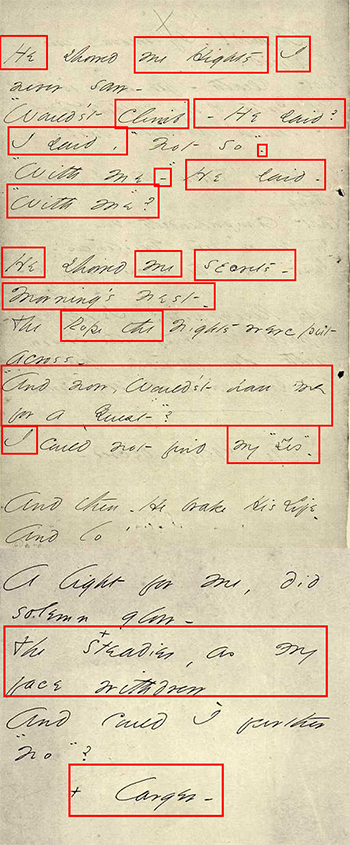 X
He showed me Hights I
never saw -
"Would'st Climb" - He said?
I said, "Not so".
"With me -" He said -
"With me"?
He showed me secrets -
Morning's nest -
The Rope the Nights were put
across -
"And now, Would'st have me
for a Guest"?
I could not find my "Yes" -
And then - He brake His Life -
And lo
A light for me, did
solemn glow -
The +steadier, as my
face withdrew
And could I further
"No"?
+ Larger -